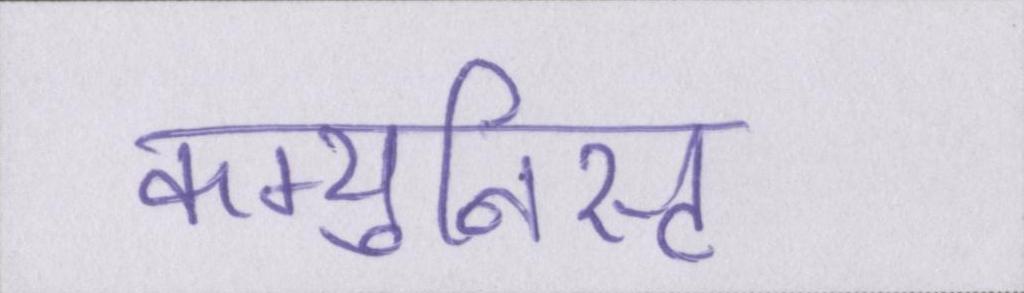 कम्युनिस्ट